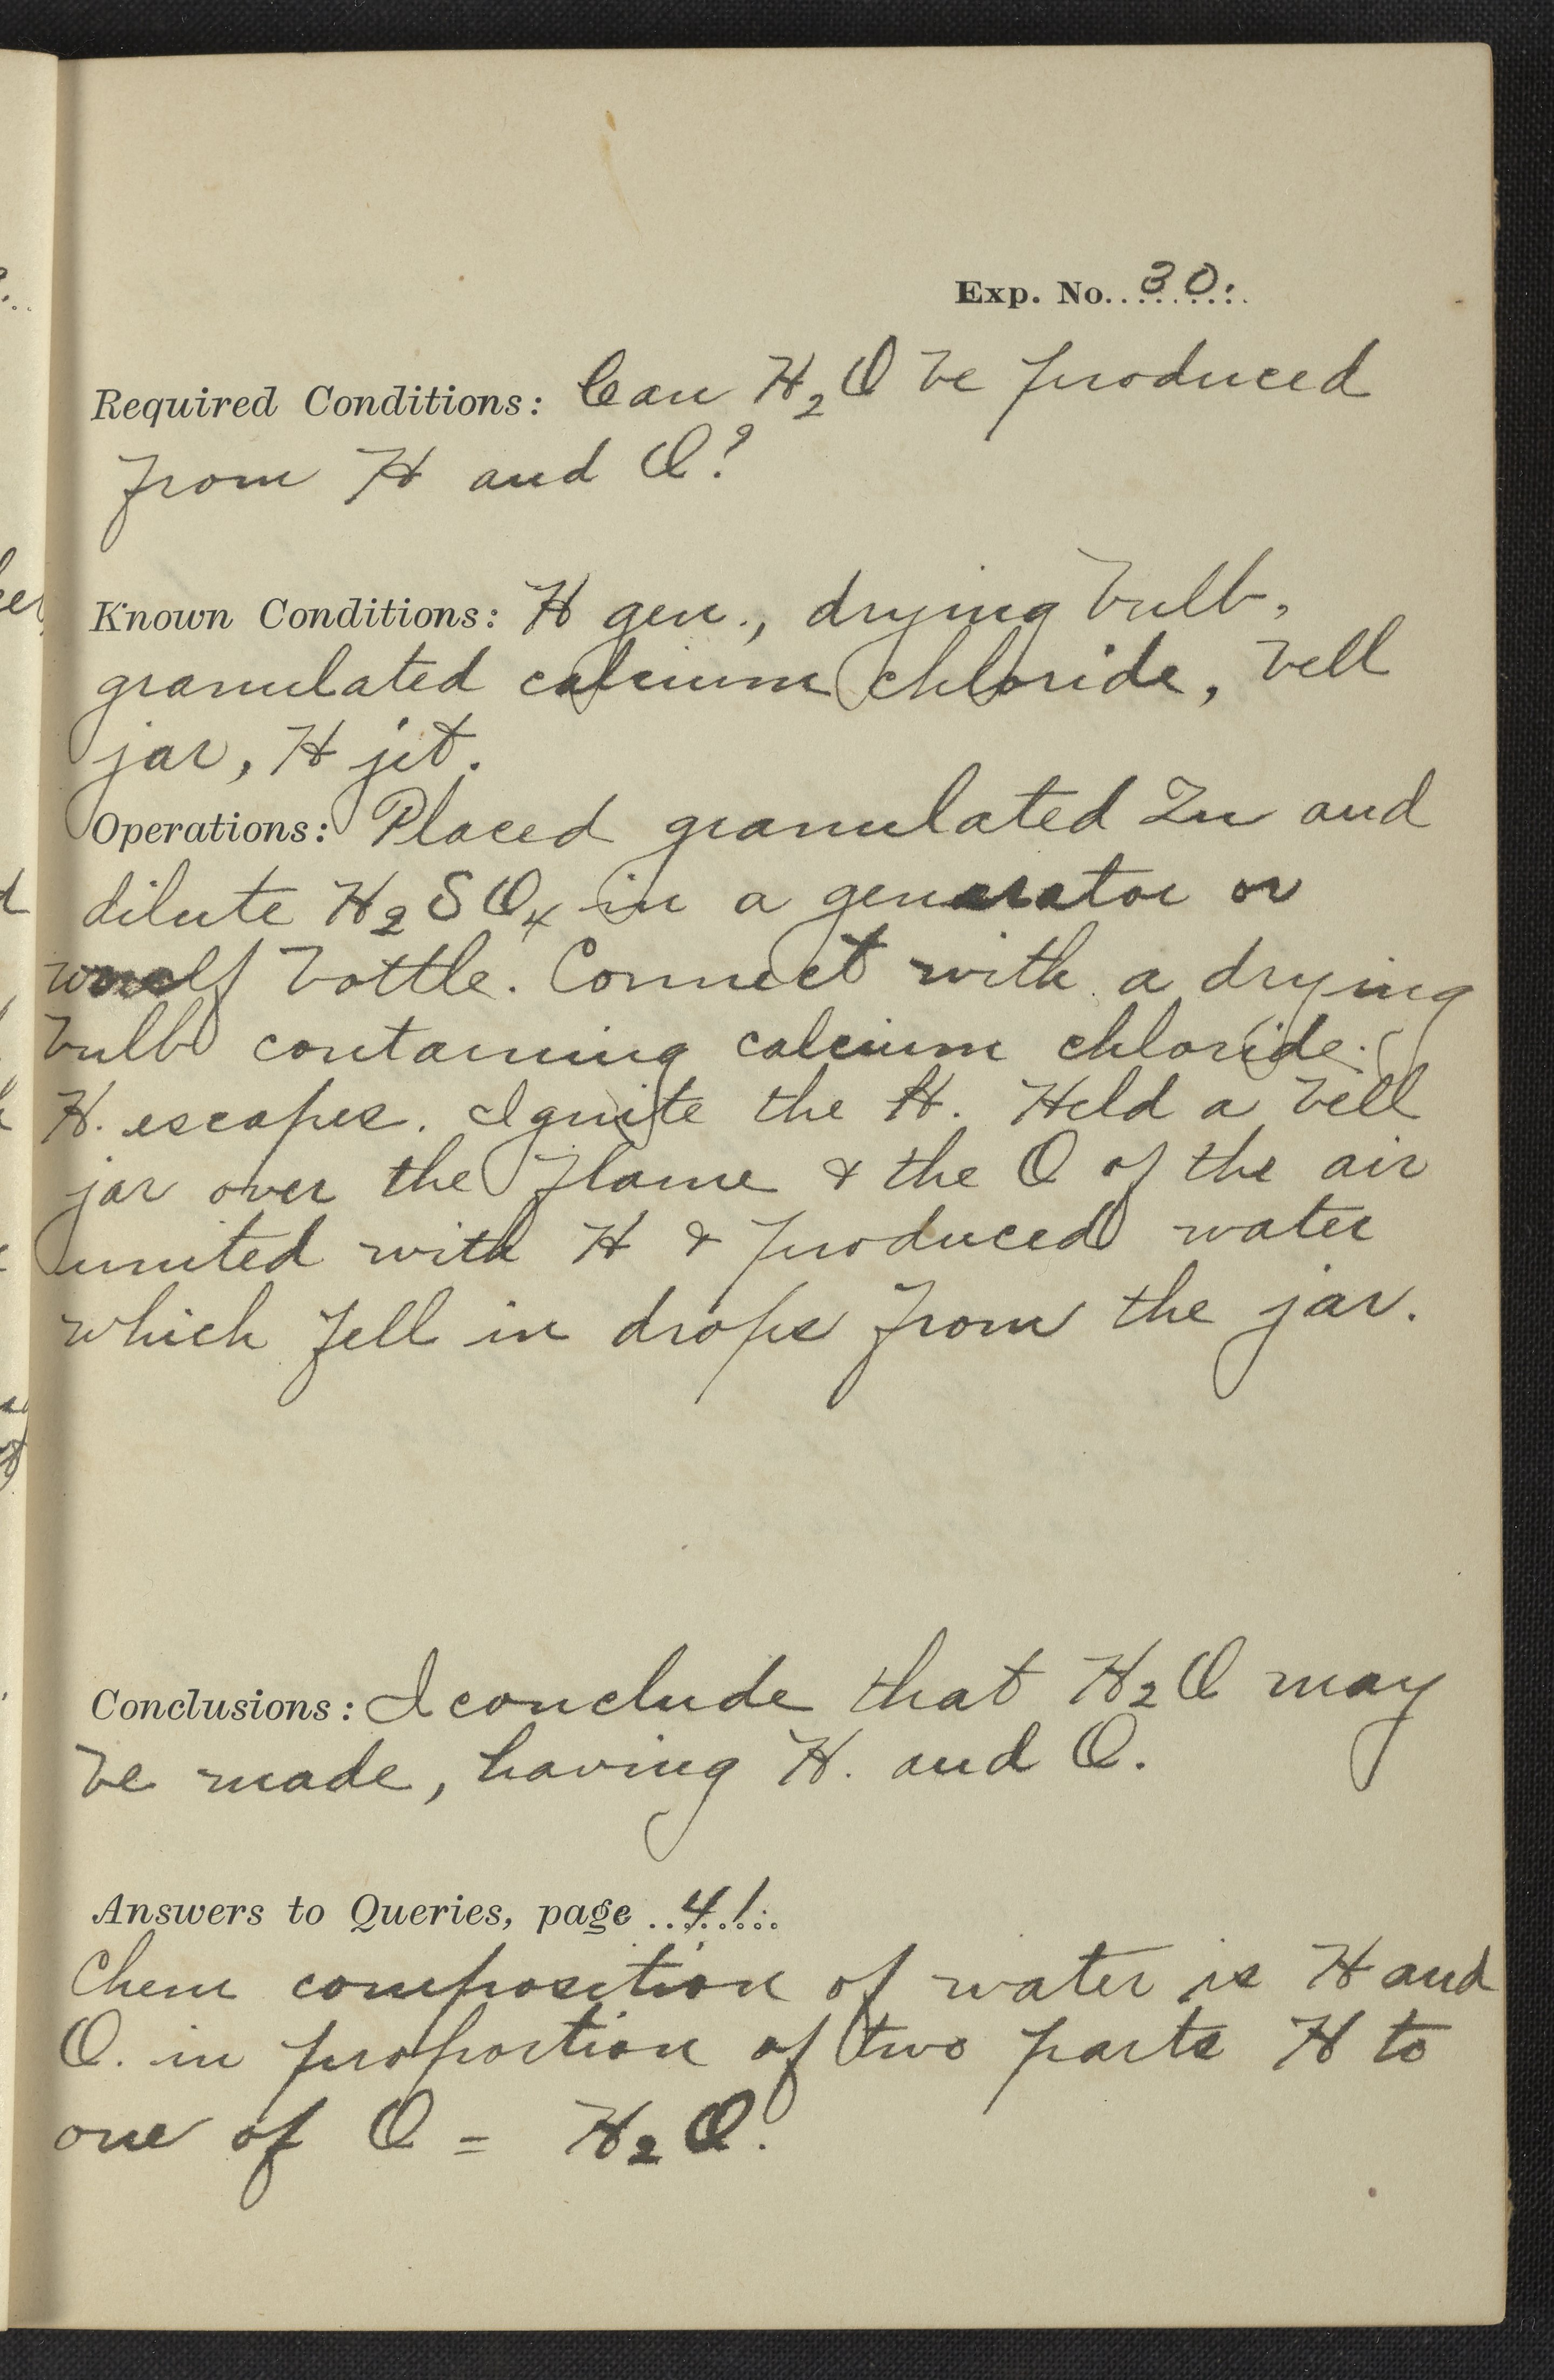 Exp. No. 30.
Required Conditions: Can H₂O be produced
from H and O?
Known Conditions: H gen., drying bulb,
granulated calcium chloride, bell
jar, H jet.
Operations: Placed granulated Zn and
dilute H₂SO₄ in a generator or
bottle. Connect with a drying
bulb containing calcium chloride.
H. escapes. Ignite the H. Held a bell
jar over the flame & the O of the air
united with H & produced water
which fell in drops from the jar.
Conclusions: I conclude that H₂O may
be made, having H. and O.
Answers to Queries, page 41.
Chem composition of water is H and
O. in proportion of two parts H to
one of O = H₂O.